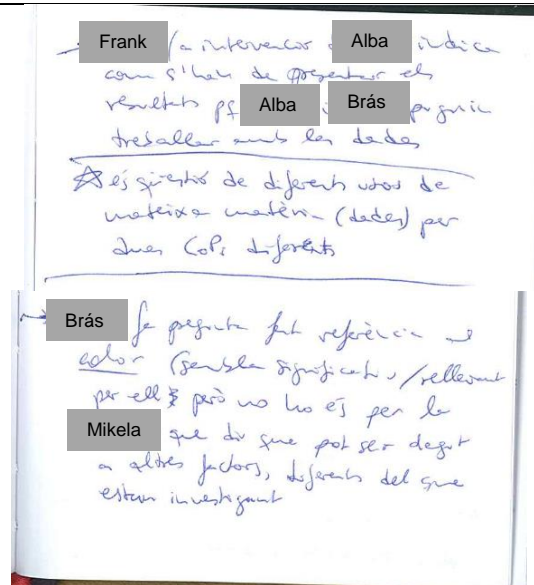 → Frank (a intervenció d Alba indica
com s'han de presentar els
resultats pq Alba i Brás puguin
treballar amb les dades
és qüestió de diferents usos de
mateixa matèria (dades) per
dues CoPs diferents
→ Brás fa pregunta fent referència al
color (sembla significatiu/rellevant
per ell però no ho és per la
Mikela que diu que pot ser degut
a altres factors, diferents del que
estan investigant